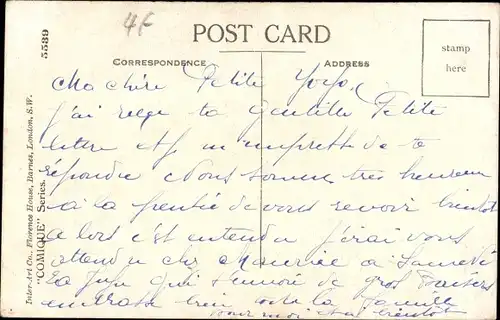 4F
POST CARD
CORRESPONDENCE
ADDRESS
stamp
here
5539
"COMIQUE" Series.
Inter-Art Co., Florence House, Barnes, London, S.W.
Ma chère Petite Yoyo,
j'ai reçu ta Gentille Petite
lettre et je m'empresse de te
répondre Nous sommes très heureux
a la pensée de vous revoir bientôt
alors c'est entendu j'irai vous
attendre chez Maurice a Samedi
de gros Baisers
embrasse bien toute la famille
pour moi et a bientôt